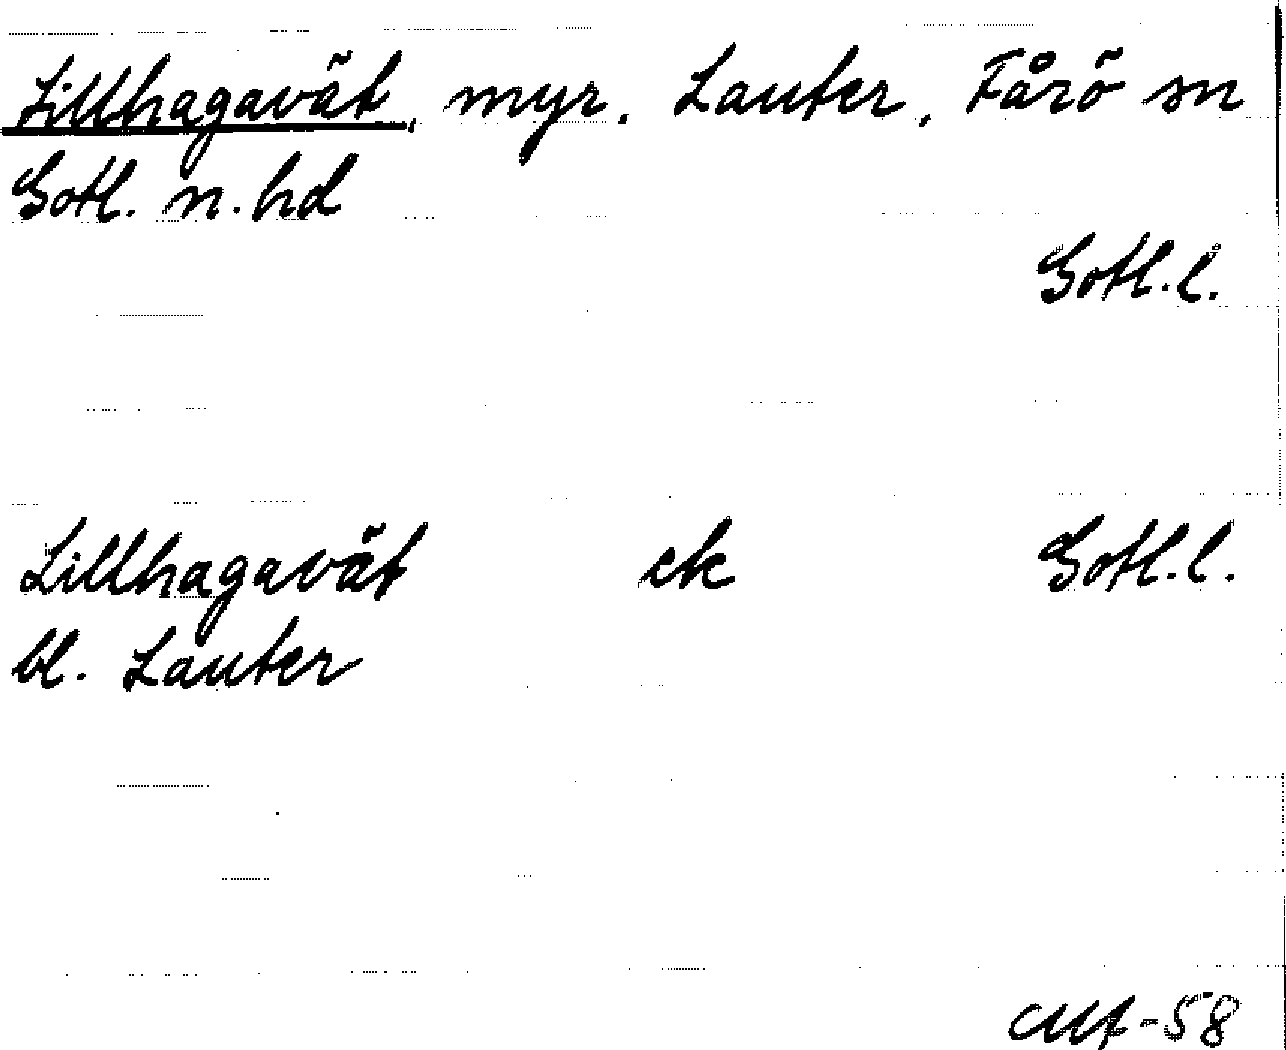 Lillhagavät, myr. Lauter, Fårö sn
Gotl. n. hd
Gotl. l.
Lillhagavät ek Gotl. l.
bl. Lauter
-58